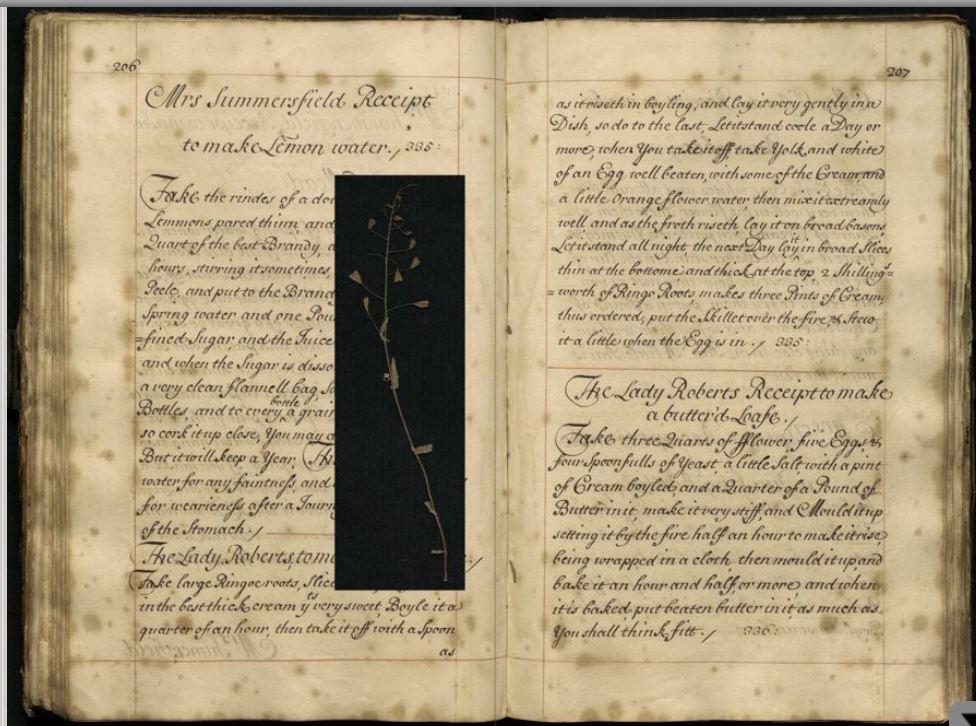 206
Mrs Summersfield Receipt
to make Lemon water. / 335:
Take the rindes of a
Lemmons pared thinn, and
Quart of the best Brandy,
hours, stirring it sometimes,
Peele, and put to the
Spring water and one
=fined Sugar, and the Juice
and when the Sugar is
a very clean flannell bag,
bottle
Bottles, and to every a
so cork it up close, You may
But it will keep a Year,
water for any faintness, and
for weariness after a
of the Stomach. /
The Lady Roberts, to
Take large Ringoe roots,
ts
in the best thick cream y very sweet Boyle it a
quarter of an hour, then take it off with a Spoon
as
207
as it riseth in boyling, and lay it very gently in a
Dish, so do to the last, Let it stand coole a Day or
more, when You take it off take Yolk and white
of an Egg well beaten, with some of the Cream and
a little Orange flower water, then mix it extreamly
well and as the froth riseth, lay it on broad basons,
Let it stand all night, the next Day lay it in broad Slices
thin at the bottome and thick at the top, 2 Shilling's=
=worth of Ringo Roots makes three Pints of Cream,
thus ordered, put the Skillet over the fire & Stew
it a little when the Egg is in. / 335:
The Lady Roberts Receipt to make
a butter'd Loafe. /
Take three Quarts of fflower, five Eggs, &
four Spoonfulls of Yeast, a little Salt, with a pint
of Cream boyled, and a Quarter of a Pound of
Butter in it, make it very stiff, and Mould it up
setting it by the fire half an hour to make it rise,
being wrapped in a cloth, then mould it up and
bake it an hour and half, or more, and when
it is baked, put beaten butter in it as much as
You shall think fitt. / 336: